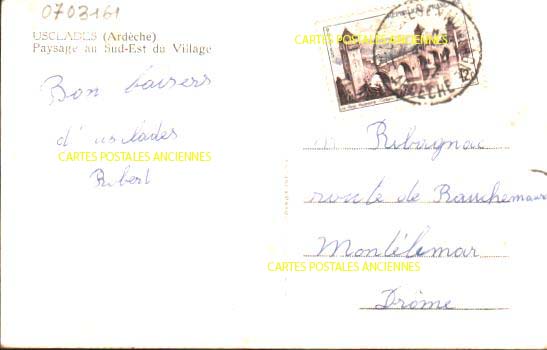 0703161
USCLADES (Ardèche)
Paysage au Sud-Est du Village
CARTES POSTALES ANCIENNES
Bon baisers
d'usclades
CARTES POSTALES ANCIENNES
Robert
Ribagnac
route de Rauchemaure
Montélemar
CARTES POSTALES ANCIENNES
Drôme